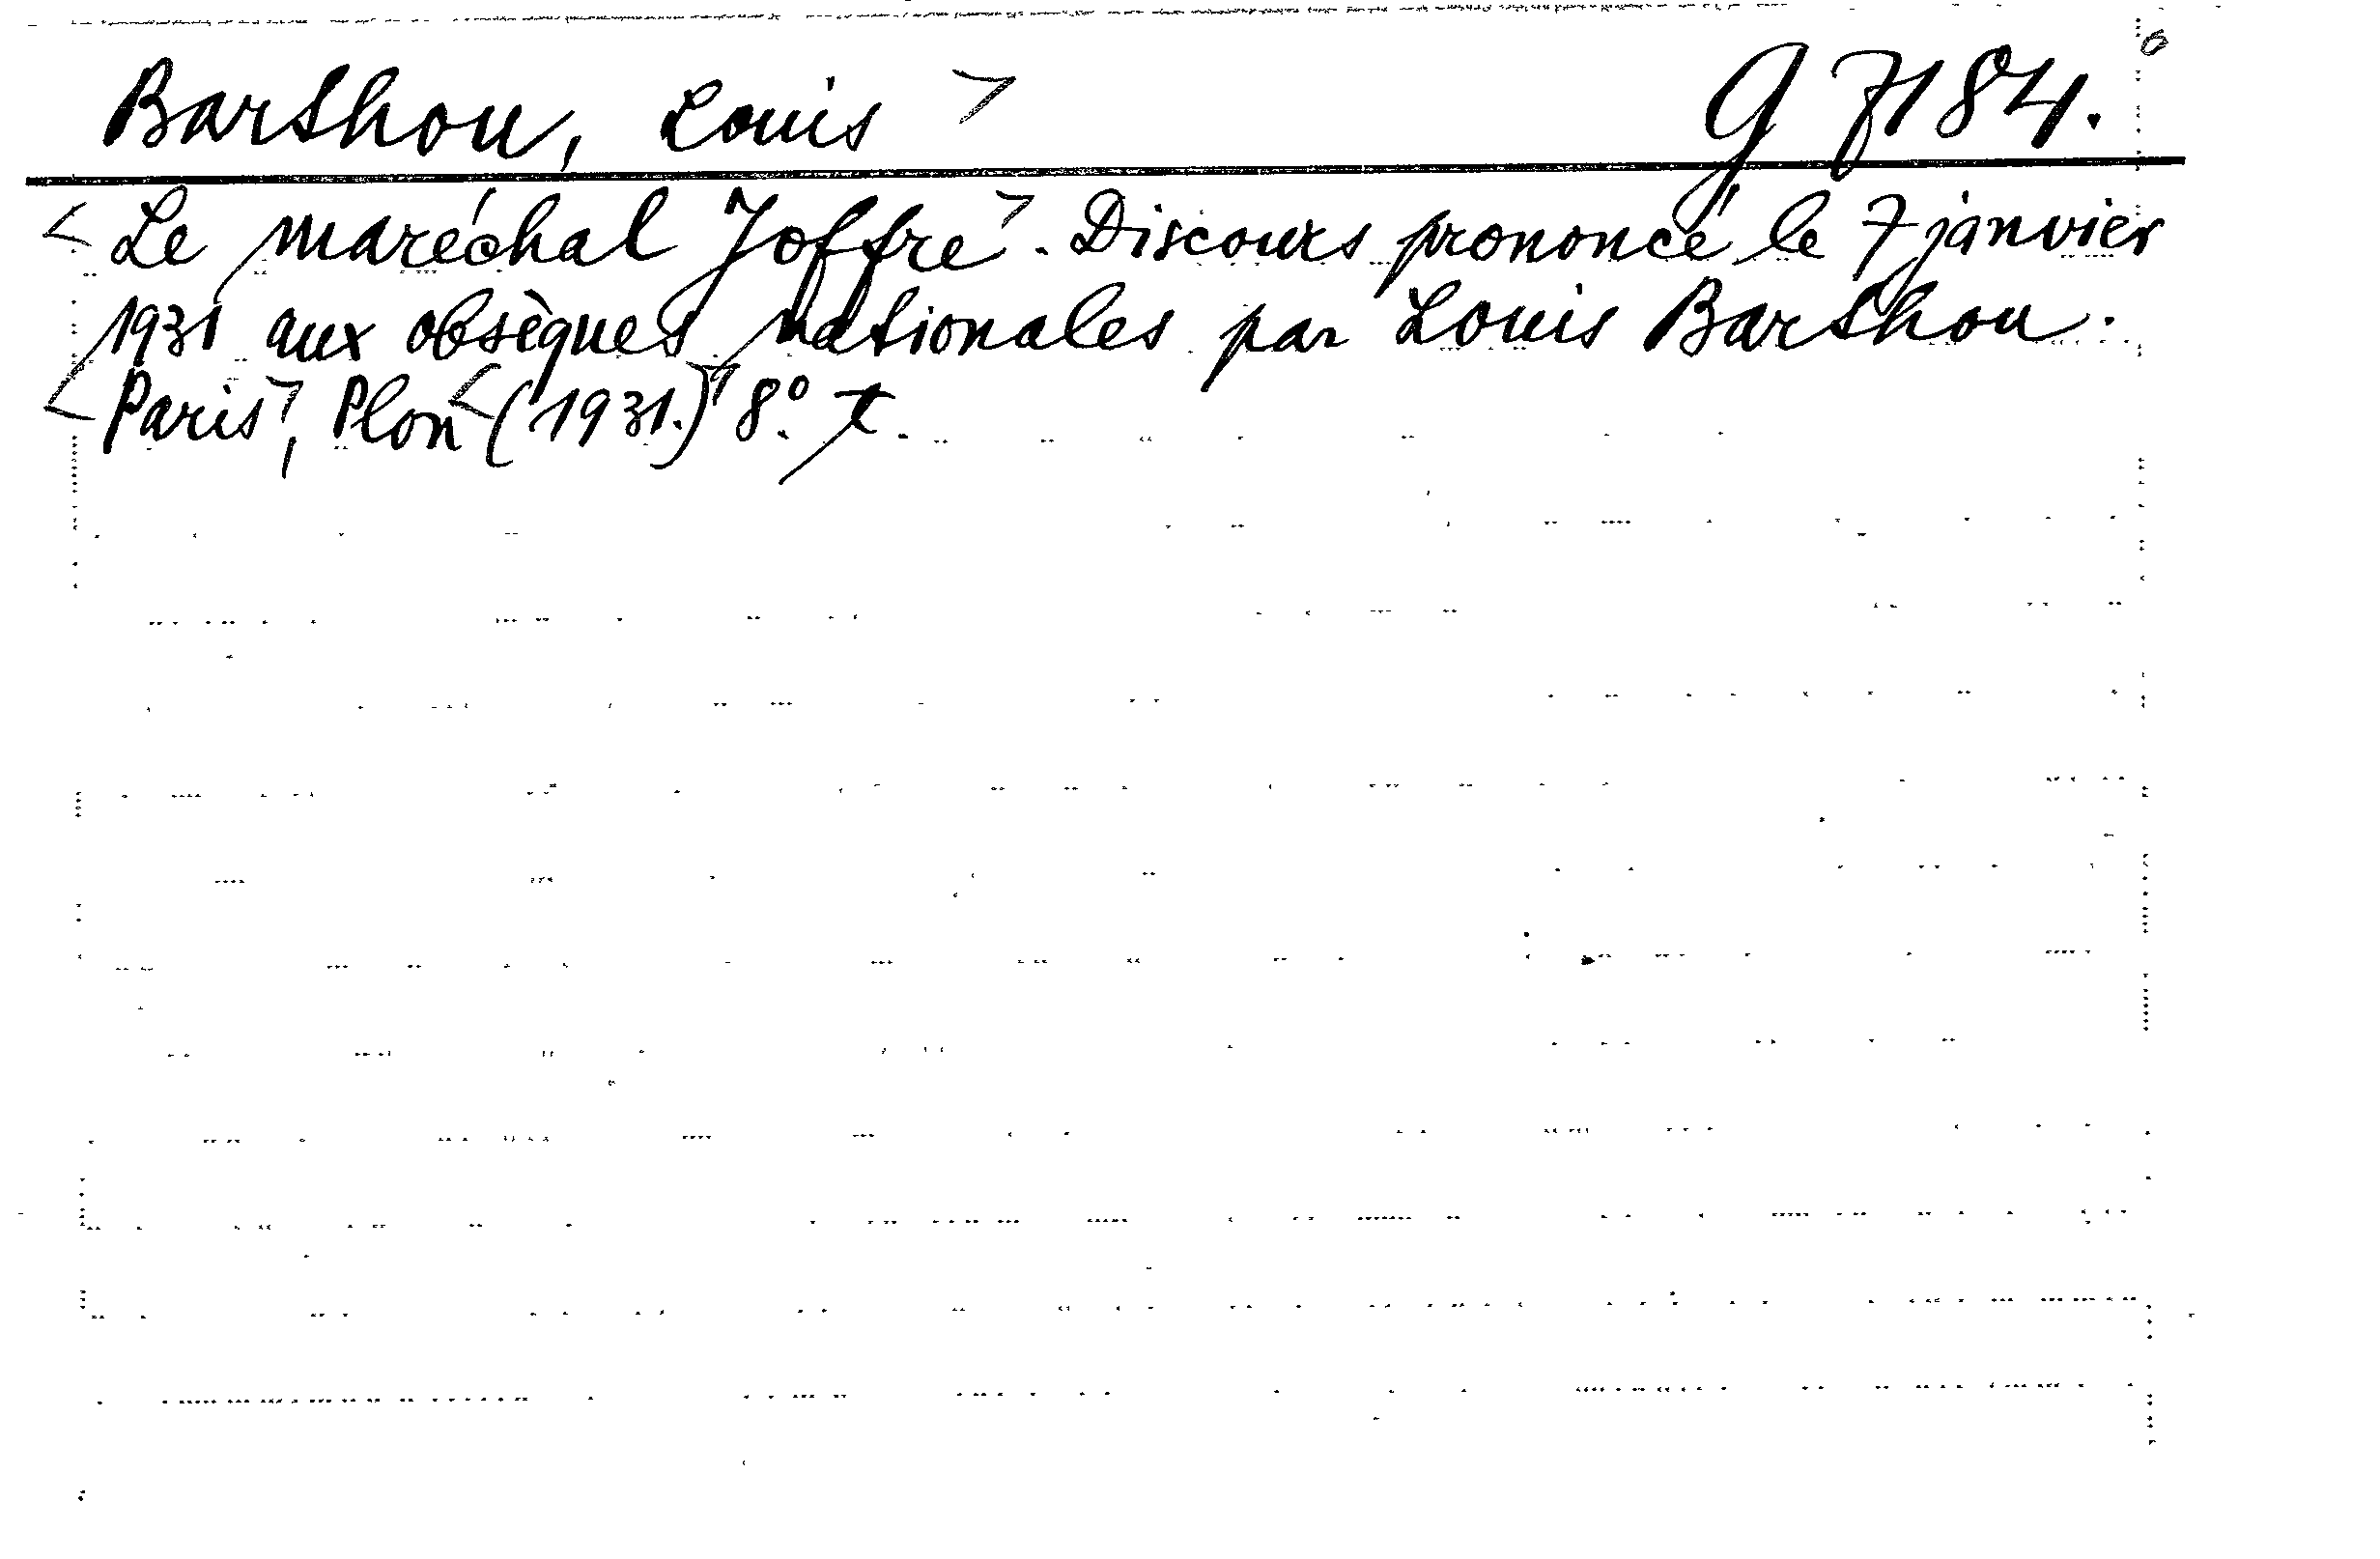 Barthou, Louis > G 7184.
< Le maréchal Joffre >. Discours prononcé le 7 janvier
1931 aux obsèques nationales par Louis Barthou.
< Paris >, Plon < (1931.) > 8°. t.